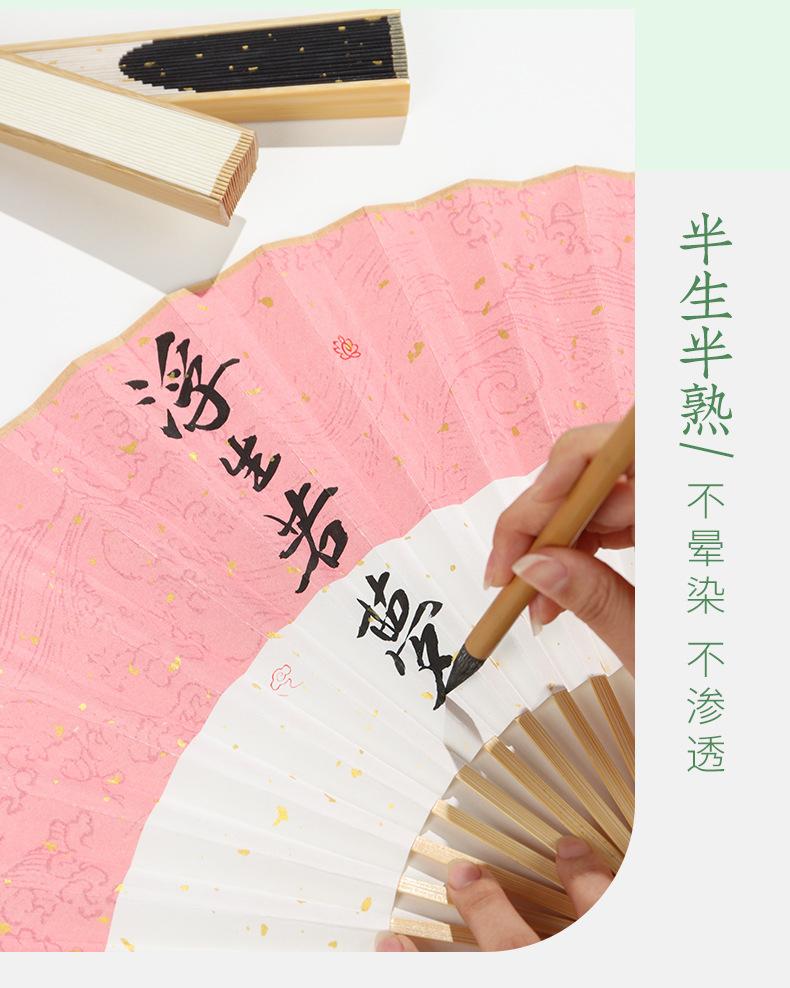 半生半熟/
不晕染 不渗透
浮生若梦